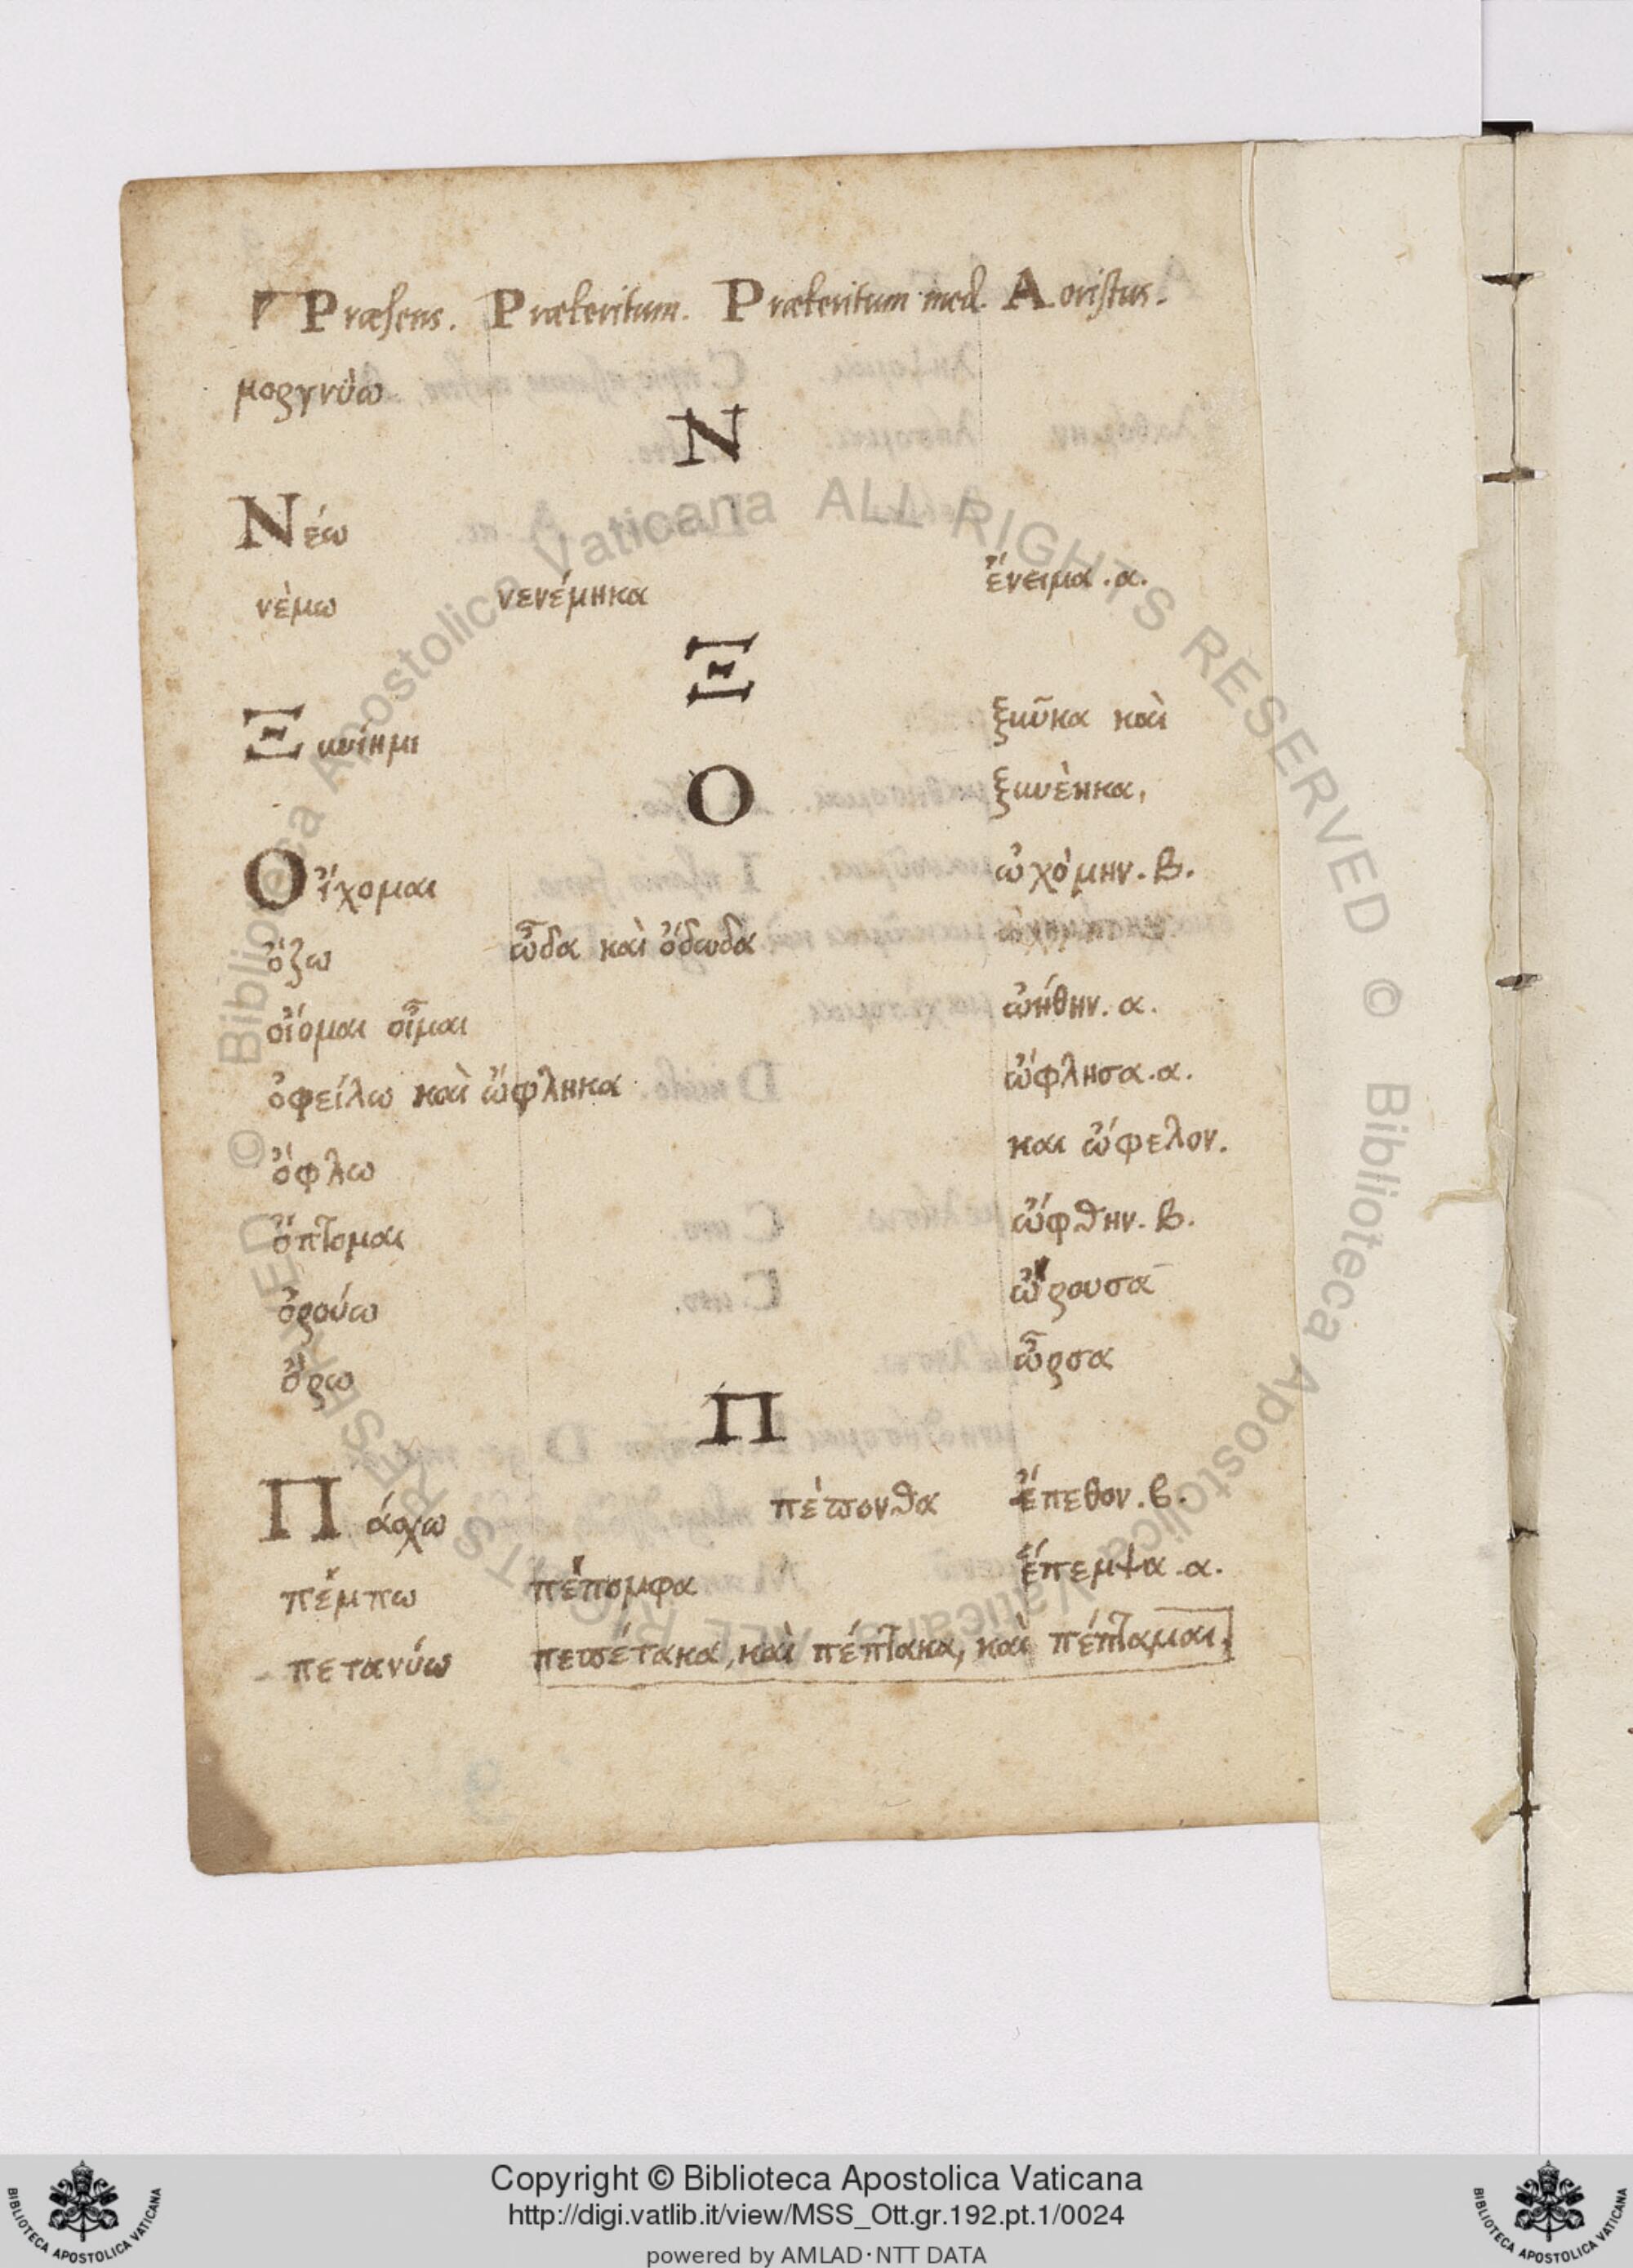 Præsens. Præteritum. Præteritum med. Aoristus.
μοργνύω
Ν
Νέω
νὲμω νενέμηκα ἔνειμα . α.
Ξ
Ξυνίημι ξυῦκα καὶ
Ο ξυνὲηκα,
Οἴχομαι ὠχόμην . β.
ὄζω ὦδα καὶ ὄδωδα
οἴομαι οἶμαι ὠήθην . α.
ὀφείλω καὶ ὤφληκα ὤφλησα . α.
και ὤφελον.
ὄφλω
ὄπτομαι ὤφθην . β.
ὀρούω ὤρουσα
ὄρω ὦρσα
Π
Πάσχω πέπονθα ἔπεθον . β.
πέμπω πέπομφα ἔπεμψα . α.
πετανύω πεπέτακα, καὶ πέπτακα, καὶ πέπταμαι.
© Biblioteca Apostolica Vaticana ALL RIGHTS RESERVED © Biblioteca Apostolica Vaticana ALL RIGHTS RESERVED
Copyright © Biblioteca Apostolica Vaticana
http://digi.vatlib.it/view/MSS_Ott.gr.192.pt.1/0024
powered by AMLAD·NTT DATA
BIBLIOTECA APOSTOLICA VATICANA
BIBLIOTECA APOSTOLICA VATICANA